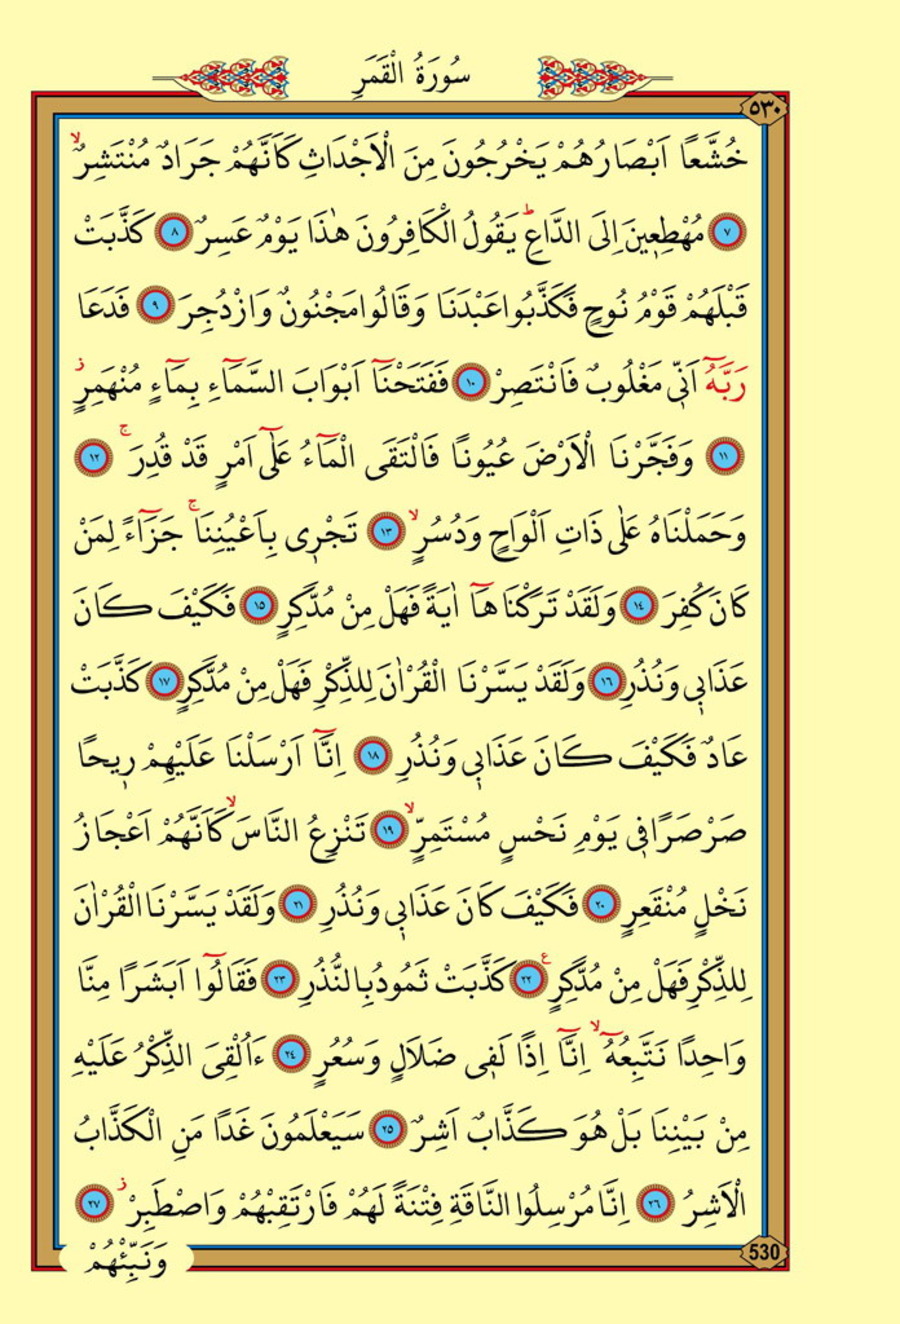 سُورَةُ الْقَمَرِ
٥٣٠
خُشَّعًا اَبْصَارُهُمْ يَخْرُجُونَ مِنَ الْاَجْدَاثِ كَاَنَّهُمْ جَرَادٌ مُنْتَشِرٌۙ
﴿٧﴾ مُهْطِع۪ينَ اِلَى الدَّاعِۜ يَقُولُ الْكَافِرُونَ هٰذَا يَوْمٌ عَسِرٌ ﴿٨﴾ كَذَّبَتْ
قَبْلَهُمْ قَوْمُ نُوحٍ فَكَذَّبُوا عَبْدَنَا وَقَالُوا مَجْنُونٌ وَازْدُجِرَ ﴿٩﴾ فَدَعَا
رَبَّهُٓ اَنّ۪ي مَغْلُوبٌ فَانْتَصِرْ ﴿١٠﴾ فَفَتَحْنَٓا اَبْوَابَ السَّمَٓاءِ بِمَٓاءٍ مُنْهَمِرٍۘ
﴿١١﴾ وَفَجَّرْنَا الْاَرْضَ عُيُونًا فَالْتَقَى الْمَٓاءُ عَلٰٓى اَمْرٍ قَدْ قُدِرَۚ ﴿١٢﴾
وَحَمَلْنَاهُ عَلٰى ذَاتِ اَلْوَاحٍ وَدُسُرٍۙ ﴿١٣﴾ تَجْر۪ي بِاَعْيُنِنَاۚ جَزَٓاءً لِمَنْ
كَانَ كُفِرَ ﴿١٤﴾ وَلَقَدْ تَرَكْنَاهَٓا اٰيَةً فَهَلْ مِنْ مُدَّكِرٍ ﴿١٥﴾ فَكَيْفَ كَانَ
عَذَاب۪ي وَنُذُرِ ﴿١٦﴾ وَلَقَدْ يَسَّرْنَا الْقُرْاٰنَ لِلذِّكْرِ فَهَلْ مِنْ مُدَّكِرٍ ﴿١٧﴾ كَذَّبَتْ
عَادٌ فَكَيْفَ كَانَ عَذَاب۪ي وَنُذُرِ ﴿١٨﴾ اِنَّٓا اَرْسَلْنَا عَلَيْهِمْ ر۪يحًا
صَرْصَرًا ف۪ي يَوْمِ نَحْسٍ مُسْتَمِرٍّۙ ﴿١٩﴾ تَنْزِعُ النَّاسَۙ كَاَنَّهُمْ اَعْجَازُ
نَخْلٍ مُنْقَعِرٍ ﴿٢٠﴾ فَكَيْفَ كَانَ عَذَاب۪ي وَنُذُرِ ﴿٢١﴾ وَلَقَدْ يَسَّرْنَا الْقُرْاٰنَ
لِلذِّكْرِ فَهَلْ مِنْ مُدَّكِرٍ۟ ﴿٢٢﴾ كَذَّبَتْ ثَمُودُ بِالنُّذُرِ ﴿٢٣﴾ فَقَالُٓوا اَبَشَرًا مِنَّا
وَاحِدًا نَتَّبِعُهُٓۙ اِنَّٓا اِذًا لَف۪ي ضَلَالٍ وَسُعُرٍ ﴿٢٤﴾ ءَاُلْقِيَ الذِّكْرُ عَلَيْهِ
مِنْ بَيْنِنَا بَلْ هُوَ كَذَّابٌ اَشِرٌ ﴿٢٥﴾ سَيَعْلَمُونَ غَدًا مَنِ الْكَذَّابُ
الْاَشِرُ ﴿٢٦﴾ اِنَّا مُرْسِلُوا النَّاقَةِ فِتْنَةً لَهُمْ فَارْتَقِبْهُمْ وَاصْطَبِرْۘ ﴿٢٧﴾
530
وَنَبِّئْهُمْ